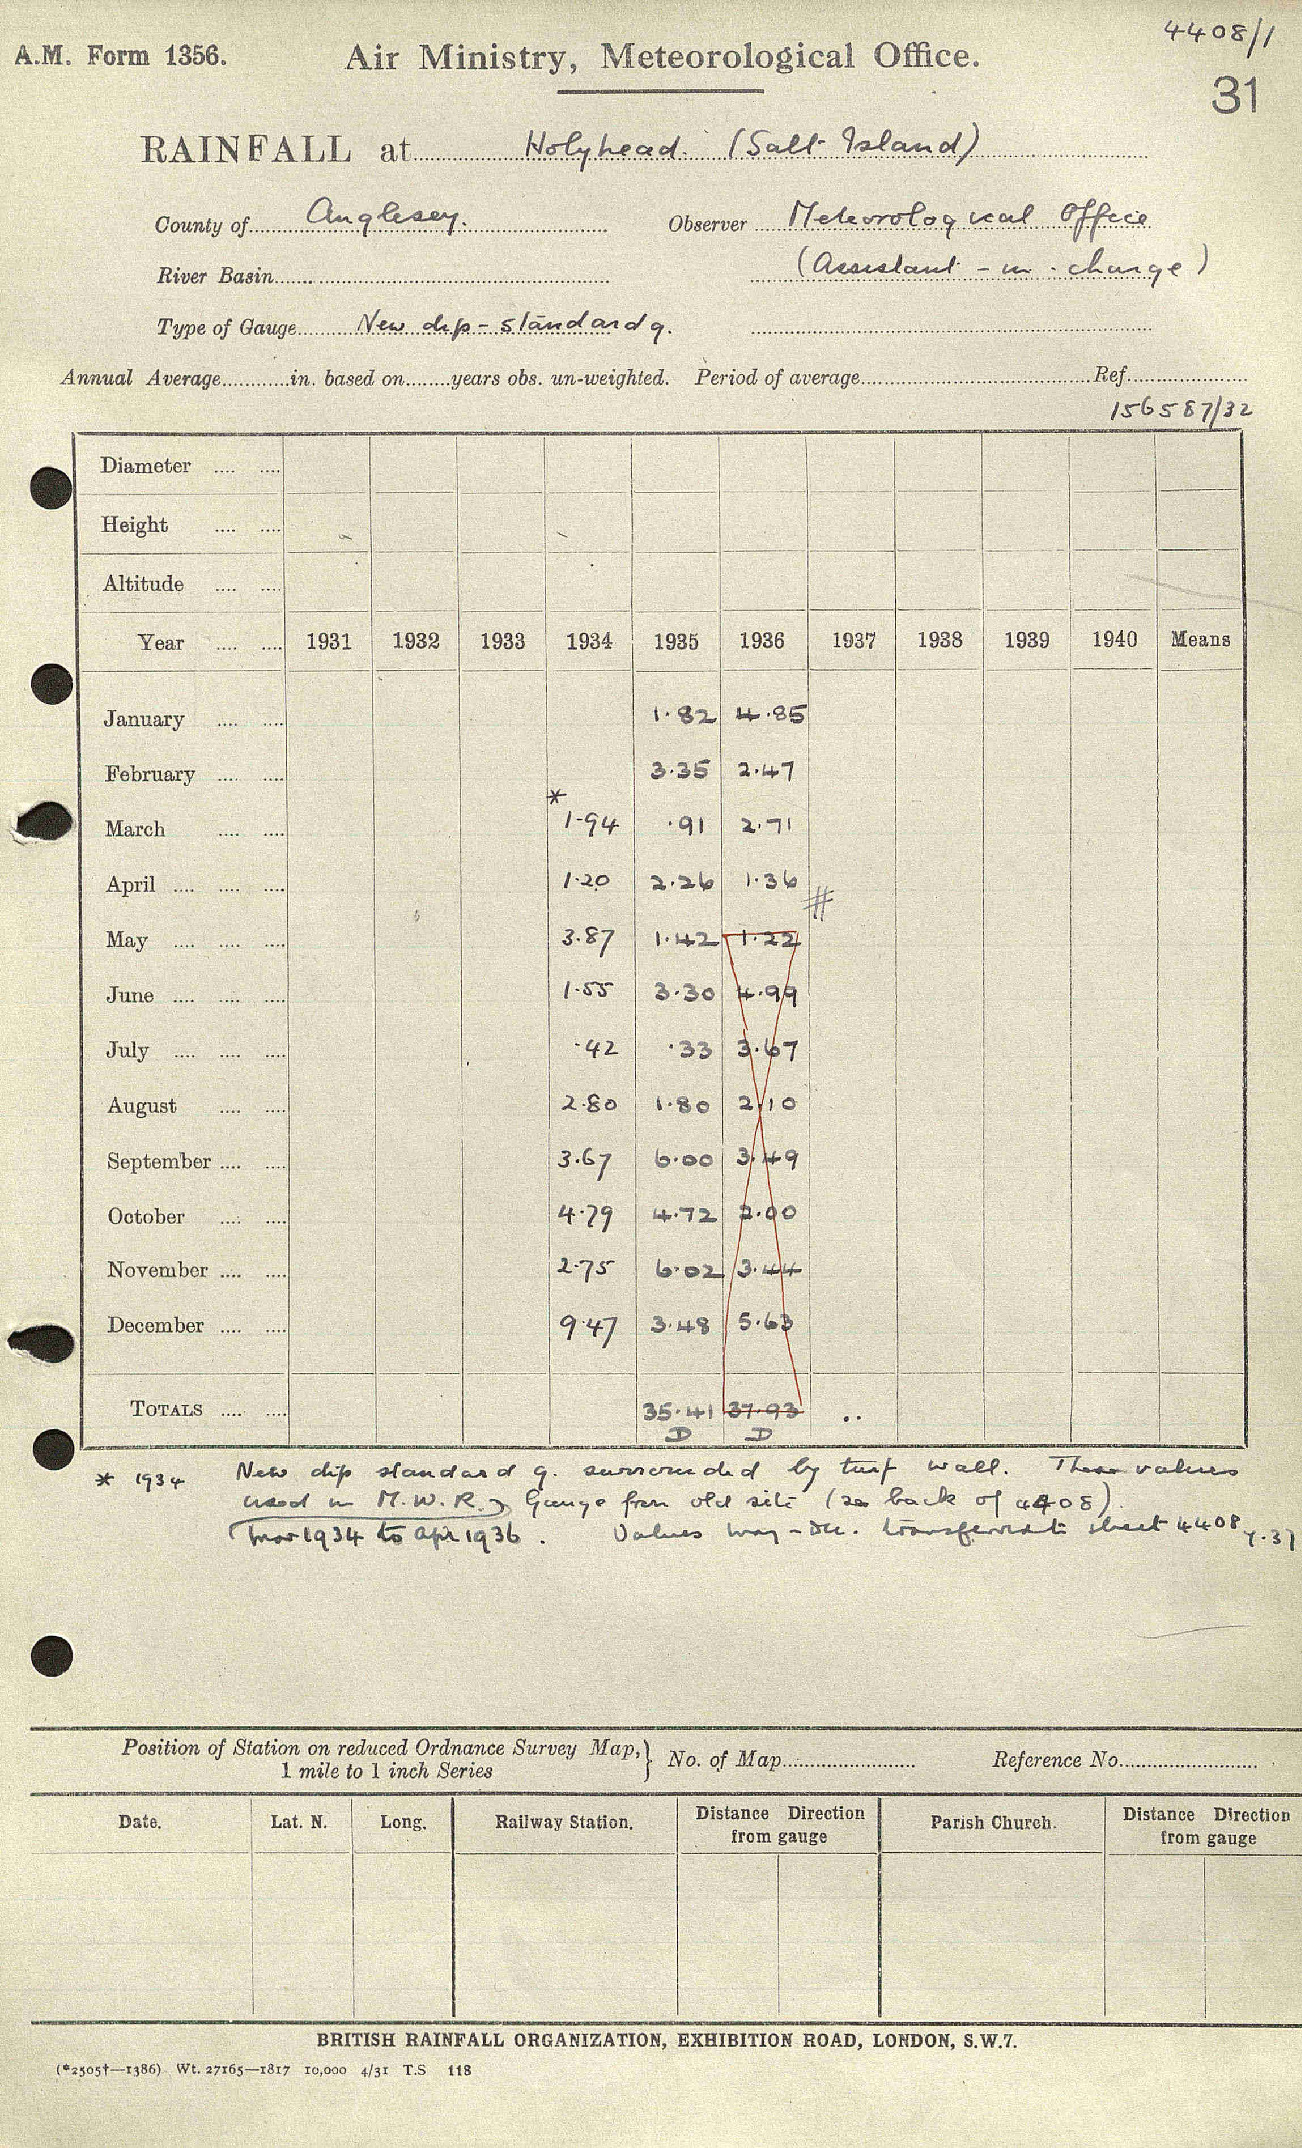 4408/1
A.M. Form 1356. Air Ministry, Meteorological Office.
31
RAINFALL at Holyhead. (Salt Island)
County of Anglesey. Observer Meteorological Office
River Basin (Assistant-in-charge)
Type of Gauge New dip-standard g.
Annual Average in. based on years obs. un-weighted. Period of average Ref.
156587/32
Diameter
Height
Altitude
Year 1931 1932 1933 1934 1935 1936 1937 1938 1939 1940 Means
January 1.82 4.85
February 3.35 2.47
*
March 1.94 .91 2.71
April 1.20 2.26 1.36
#
May 3.87 1.42 1.22
June 1.55 3.30 4.99
July .42 .33 3.67
August 2.80 1.80 2.10
September 3.67 6.00 3.49
October 4.79 4.72 2.00
November 2.75 6.02 3.44
December 9.47 3.48 5.63
TOTALS 35.41 37.93 ..
D D
* 1934 New dip standard g. surrounded by turf wall. These values
used in M.W.R. Gauge from old site (see back of 4408).
Mar 1934 to Apr 1936. Values May-Dec. transferred to sheet 4408 7.37
Position of Station on reduced Ordnance Survey Map, } No. of Map Reference No.
1 mile to 1 inch Series
Date. Lat. N. Long. Railway Station. Distance Direction from gauge Parish Church. Distance Direction from gauge
BRITISH RAINFALL ORGANIZATION, EXHIBITION ROAD, LONDON, S.W.7.
(*2505†—1386) Wt. 27165—1817 10,000 4/31 T.S 118